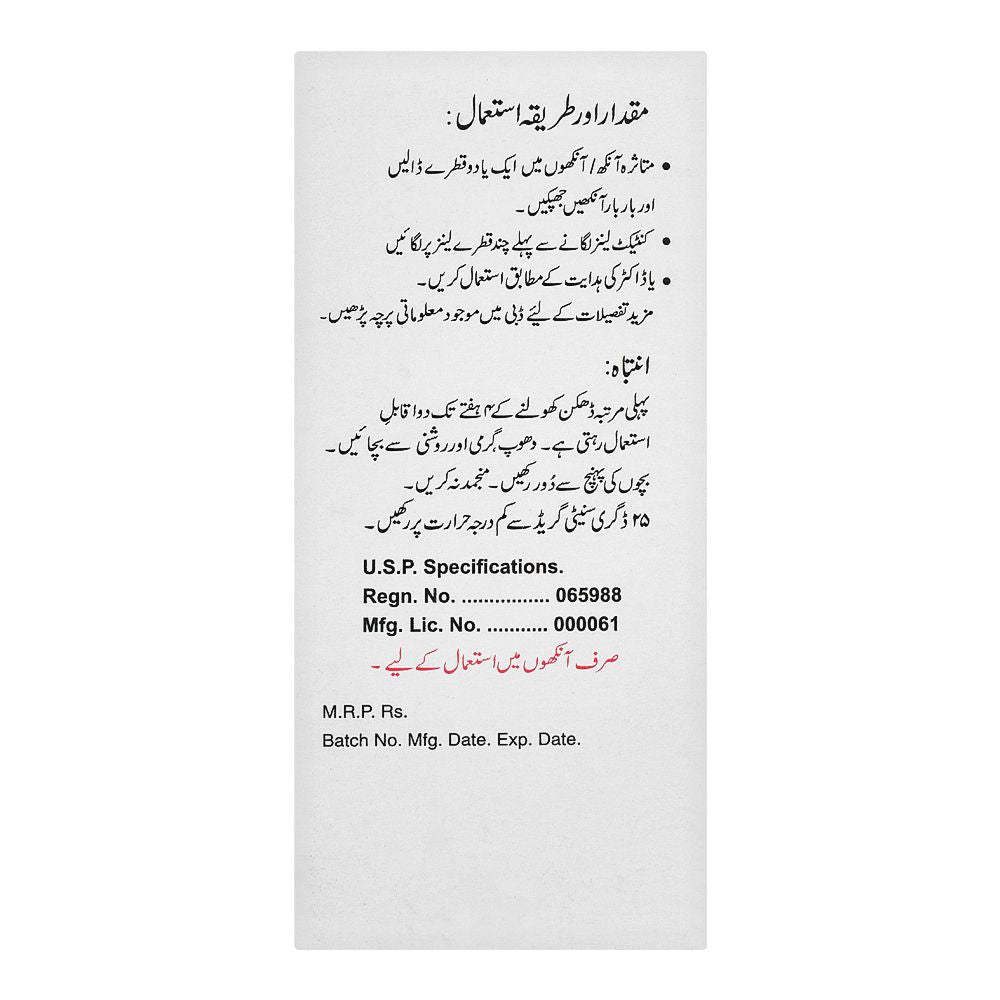 مقدار اور طریقہ استعمال:
• متاثرہ آنکھ / آنکھوں میں ایک یا دو قطرے ڈالیں
اور بار بار آنکھیں جھپکیں۔
• کنٹیکٹ لینز لگانے سے پہلے چند قطرے لینز پر لگائیں
• یا ڈاکٹر کی ہدایت کے مطابق استعمال کریں۔
مزید تفصیلات کے لئے ڈبی میں موجود معلوماتی پرچہ پڑھیں۔
انتباہ:
پہلی مرتبہ ڈھکن کھولنے کے ۴ ہفتے تک دوا قابلِ
استعمال رہتی ہے۔ دھوپ، گرمی اور روشنی سے بچائیں۔
بچوں کی پہنچ سے دُور رکھیں۔ منجمد نہ کریں۔
۲۵ ڈگری سینٹی گریڈ سے کم درجہ حرارت پر رکھیں۔
U.S.P. Specifications.
Regn. No. ................ 065988
Mfg. Lic. No. ........... 000061
صرف آنکھوں میں استعمال کے لیے۔
M.R.P. Rs.
Batch No. Mfg. Date. Exp. Date.